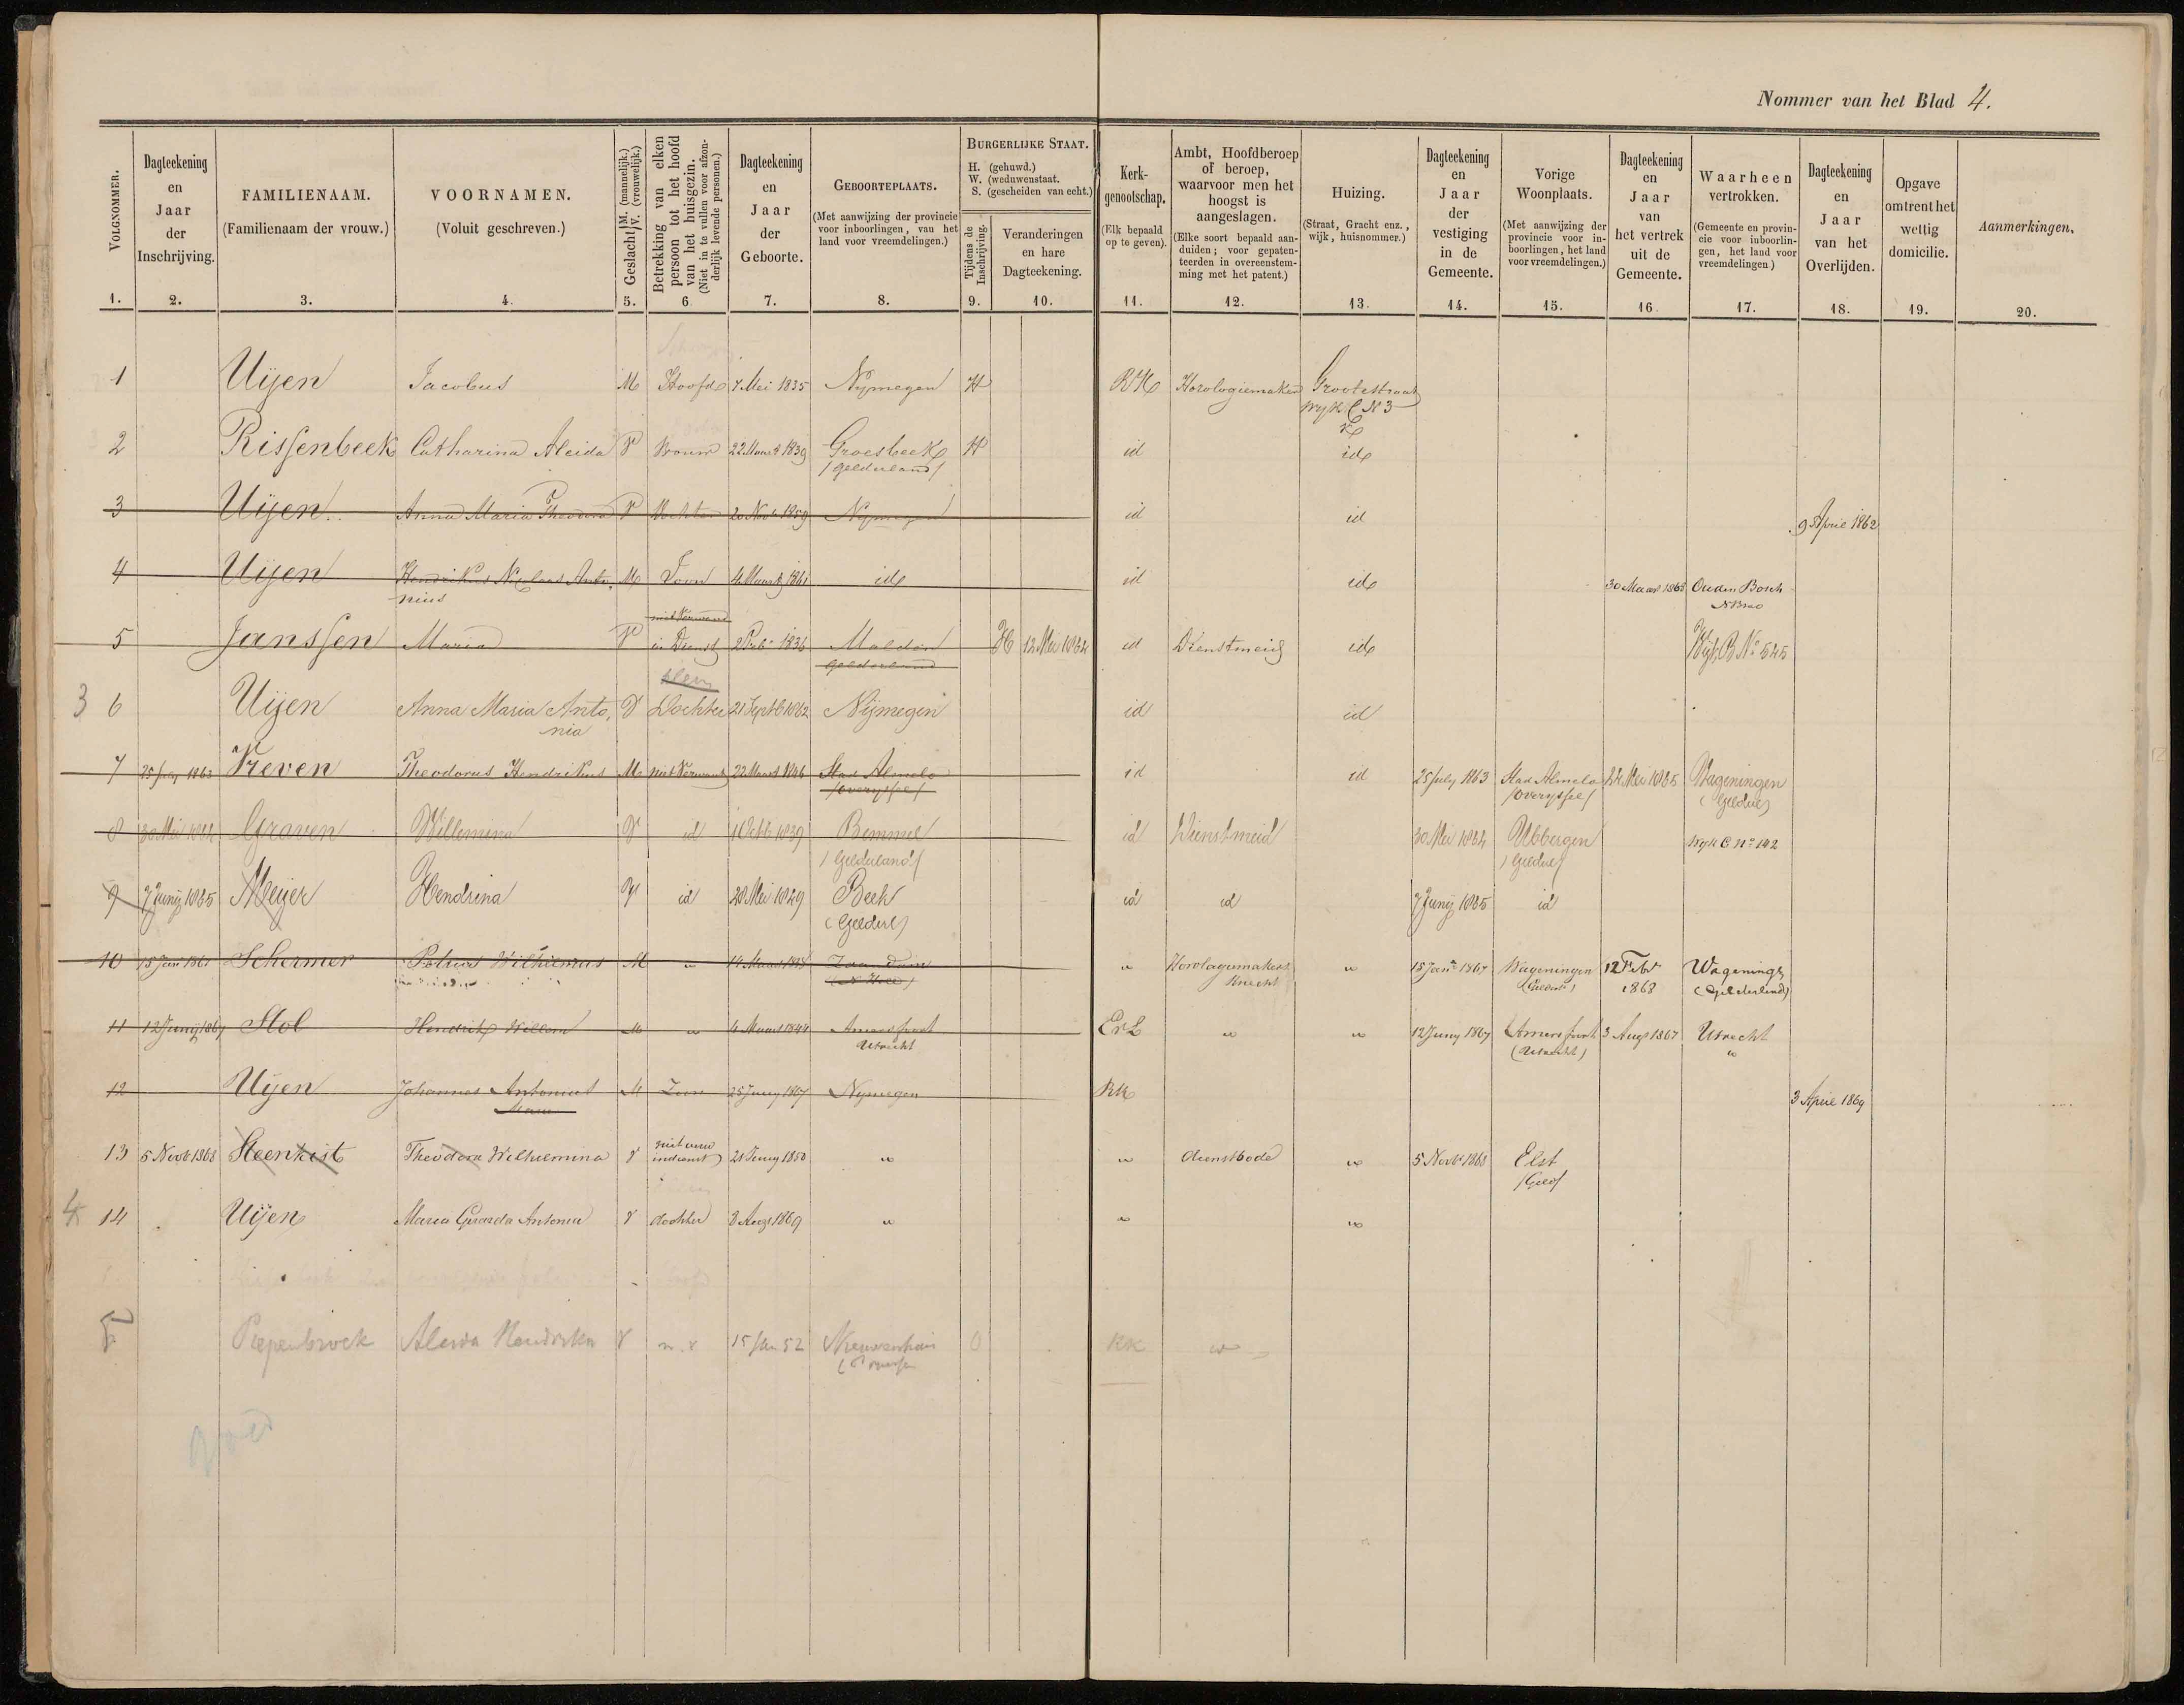 Nommer van het Blad 4.
VOLGNOMMER.
Dagteekening en Jaar der Inschrijving.
FAMILIENAAM. (Familienaam der vrouw.)
VOORNAMEN. (Voluit geschreven.)
Geslacht M. (mannelijk.) V. (vrouwelijk.)
Betrekking van elken persoon tot het hoofd van het huisgezin. (Niet in te vullen voor afzonderlijk levende personen.)
Dagteekening en Jaar der Geboorte.
GEBOORTEPLAATS. (Met aanwijzing der provincie voor inboorlingen, van het land voor vreemdelingen.)
BURGERLIJKE STAAT.
H. (gehuwd.)
W. (weduwenstaat.
S. (gescheiden van echt.)
Tijdens de Inschrijving.
Veranderingen en hare Dagteekening.
Kerkgenootschap. (Elk bepaald op te geven).
Ambt, Hoofdberoep of beroep, waarvoor men het hoogst is aangeslagen. (Elke soort bepaald aanduiden; voor gepatenteerden in overeenstemming met het patent.)
Huizing. (Straat, Gracht enz., wijk, huisnommer.)
Dagteekening en Jaar der vestiging in de Gemeente.
Vorige Woonplaats. (Met aanwijzing der provincie voor inboorlingen, het land voor vreemdelingen.)
Dagteekening en Jaar van het vertrek uit de Gemeente.
Waarheen vertrokken. (Gemeente en provincie voor inboorlingen, het land voor vreemdelingen)
Dagteekening en Jaar van het Overlijden.
Opgave omtrent het wettig domicilie.
Aanmerkingen.
1. 2. 3. 4. 5. 6 7. 8. 9. 10. 11. 12. 13. 14. 15. 16. 17. 18. 19. 20.
1 Uijen Jacobus M Hoofd 7 Mei 1835 Nijmegen H RK Horologiemaker Grootestraat
wyk C N 3
2 Rissenbeek Catharina Aleida V Vrouw 22 Maart 1839 Groesbeek H id id
/Gelderland/
3 Uijen Anna Maria Theodora V Dochter 20 Nov 1859 Nijmegen id id 9 April 1862
4 Uijen Hendrikus Nicolaas Anto- M Zoon 4 Maart 1861 id id id 30 Maart 1868 Ouden Bosch
nius N Brab
niet Verwand
5 Janssen Maria V in Dienst 2 Feb 1836 Malden H 12 Mei 1864 id Dienstmeid id Wijk B No 545
Gelderland
3 6 Uijen Anna Maria Anto- V Dochter 21 Septb 1862 Nijmegen id id
nia
7 25 July 1863 Treven Theodorus Hendrikus M niet Verwant 22 Maart 1846 Stad Almelo id id 25 July 1863 Stad Almelo 22 Mei 1865 Wageningen
/Overijssel/ /Overijssel/ (Gelderl)
8 30 Mei 1864 Graven Willemina V id 1 Octb 1839 Bemmel id Dienstmeid 30 Mei 1864 Ubbergen Wyk C No 142
/Gelderland/ /Gelderl/
9 7 Junij 1865 Meijer Hendrina V id 28 Mei 1849 Beek id id 7 Junij 1865 id
(Gelderl)
10 15 Jan 1867 Schermer Petrus Wilhelmus M " 14 Maart Zaandam " Horologemakers " 15 Jan 1867 Wageningen 12 Feb Wagening
(N Hol) knecht (Gelderl) 1868 (Gelderland)
11 12 Junij 1867 Stol Hendrik Willem M " 4 Maart 1844 Amersfoort Ev L " " 12 Juny 1867 Amersfoort 3 Aug 1867 Utrecht
Utrecht (Utrecht) "
12 Uijen Johannes Antonius M Zoon 25 Juny 1867 Nymegen RK 3 April 1869
Maria
niet verw
13 5 Novb 1868 Steenkist Theodora Wilhelmina V indienst 21 Juny 1850 " " dienstbode " 5 Novb 1868 Elst
/Geld/
4 14 Uijen Maria Gerarda Antonia V dochter 3 Aug 1869 " " "
5 Piepenbrock Aleida Hendrika V n.v 15 Jan 52 O RK "
(Pruisen
goed